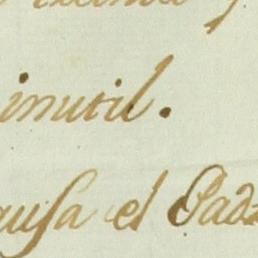 inutil.
ausa el Pad